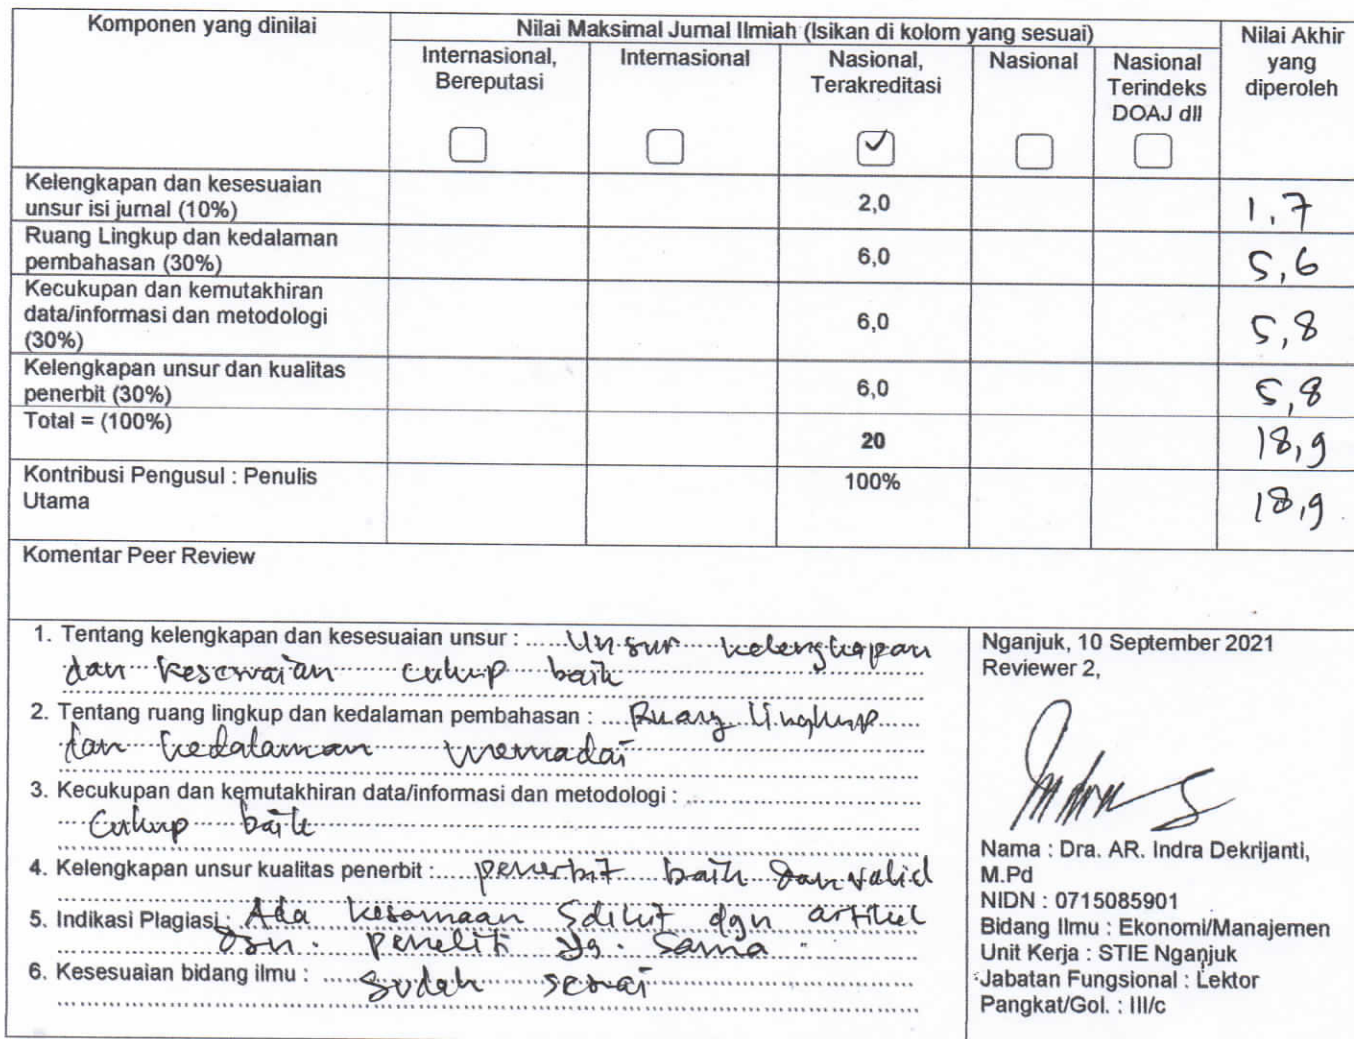 Komponen yang dinilai
Nilai Maksimal Jurnal Ilmiah (Isikan di kolom yang sesuai)
Nilai Akhir
yang
diperoleh
Internasional,
Bereputasi
Internasional
Nasional,
Terakreditasi
Nasional
Nasional
Terindeks
DOAJ dll
Kelengkapan dan kesesuaian
unsur isi jurnal (10%)
2,0
1,7
Ruang Lingkup dan kedalaman
pembahasan (30%)
6,0
5,6
Kecukupan dan kemutakhiran
data/informasi dan metodologi
(30%)
6,0
5,8
Kelengkapan unsur dan kualitas
penerbit (30%)
6,0
5,8
Total = (100%)
20
18,9
Kontribusi Pengusul : Penulis
Utama
100%
18,9
Komentar Peer Review
1. Tentang kelengkapan dan kesesuaian unsur : Unsur kelengkapan
dan kesesuaian cukup baik
2. Tentang ruang lingkup dan kedalaman pembahasan : Ruang lingkup
dan kedalaman memadai
3. Kecukupan dan kemutakhiran data/informasi dan metodologi :
Cukup baik
4. Kelengkapan unsur kualitas penerbit : penerbit baik dan valid
5. Indikasi Plagiasi : Ada kesamaan sdikit dgn artikel
peneliti yg. sama
6. Kesesuaian bidang ilmu : Sudah sesuai
Nganjuk, 10 September 2021
Reviewer 2,
Nama : Dra. AR. Indra Dekrijanti,
M.Pd
NIDN : 0715085901
Bidang Ilmu : Ekonomi/Manajemen
Unit Kerja : STIE Nganjuk
Jabatan Fungsional : Lektor
Pangkat/Gol. : III/c